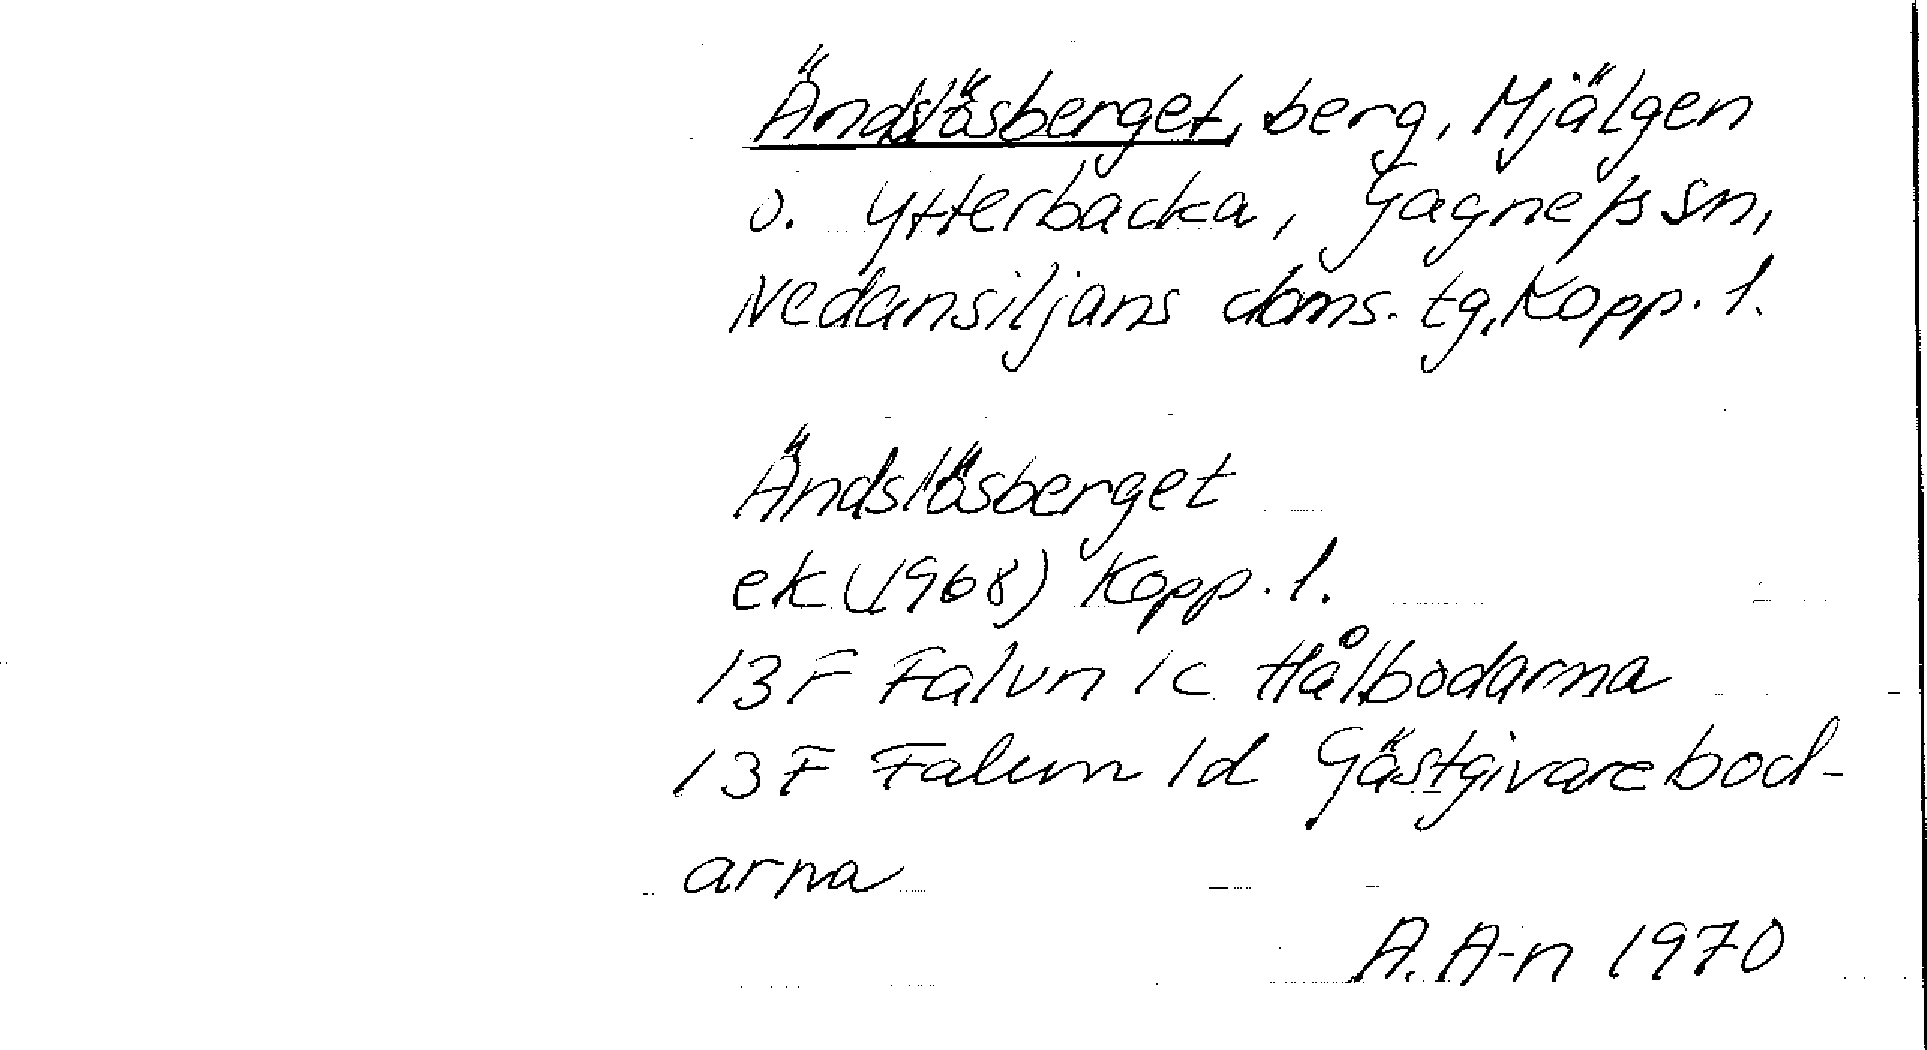 Ändslösberget, berg, Mjälgen
o. Ytterbacka, Gagnefs sn,
Nedansiljans doms. tg, Kopp. l.
Ändslösberget
ek (1968) Kopp. l.
13F Falun 1c Hålbodarna
13F Falun 1d Gästgivarebod-
arna
A. A-n 1970